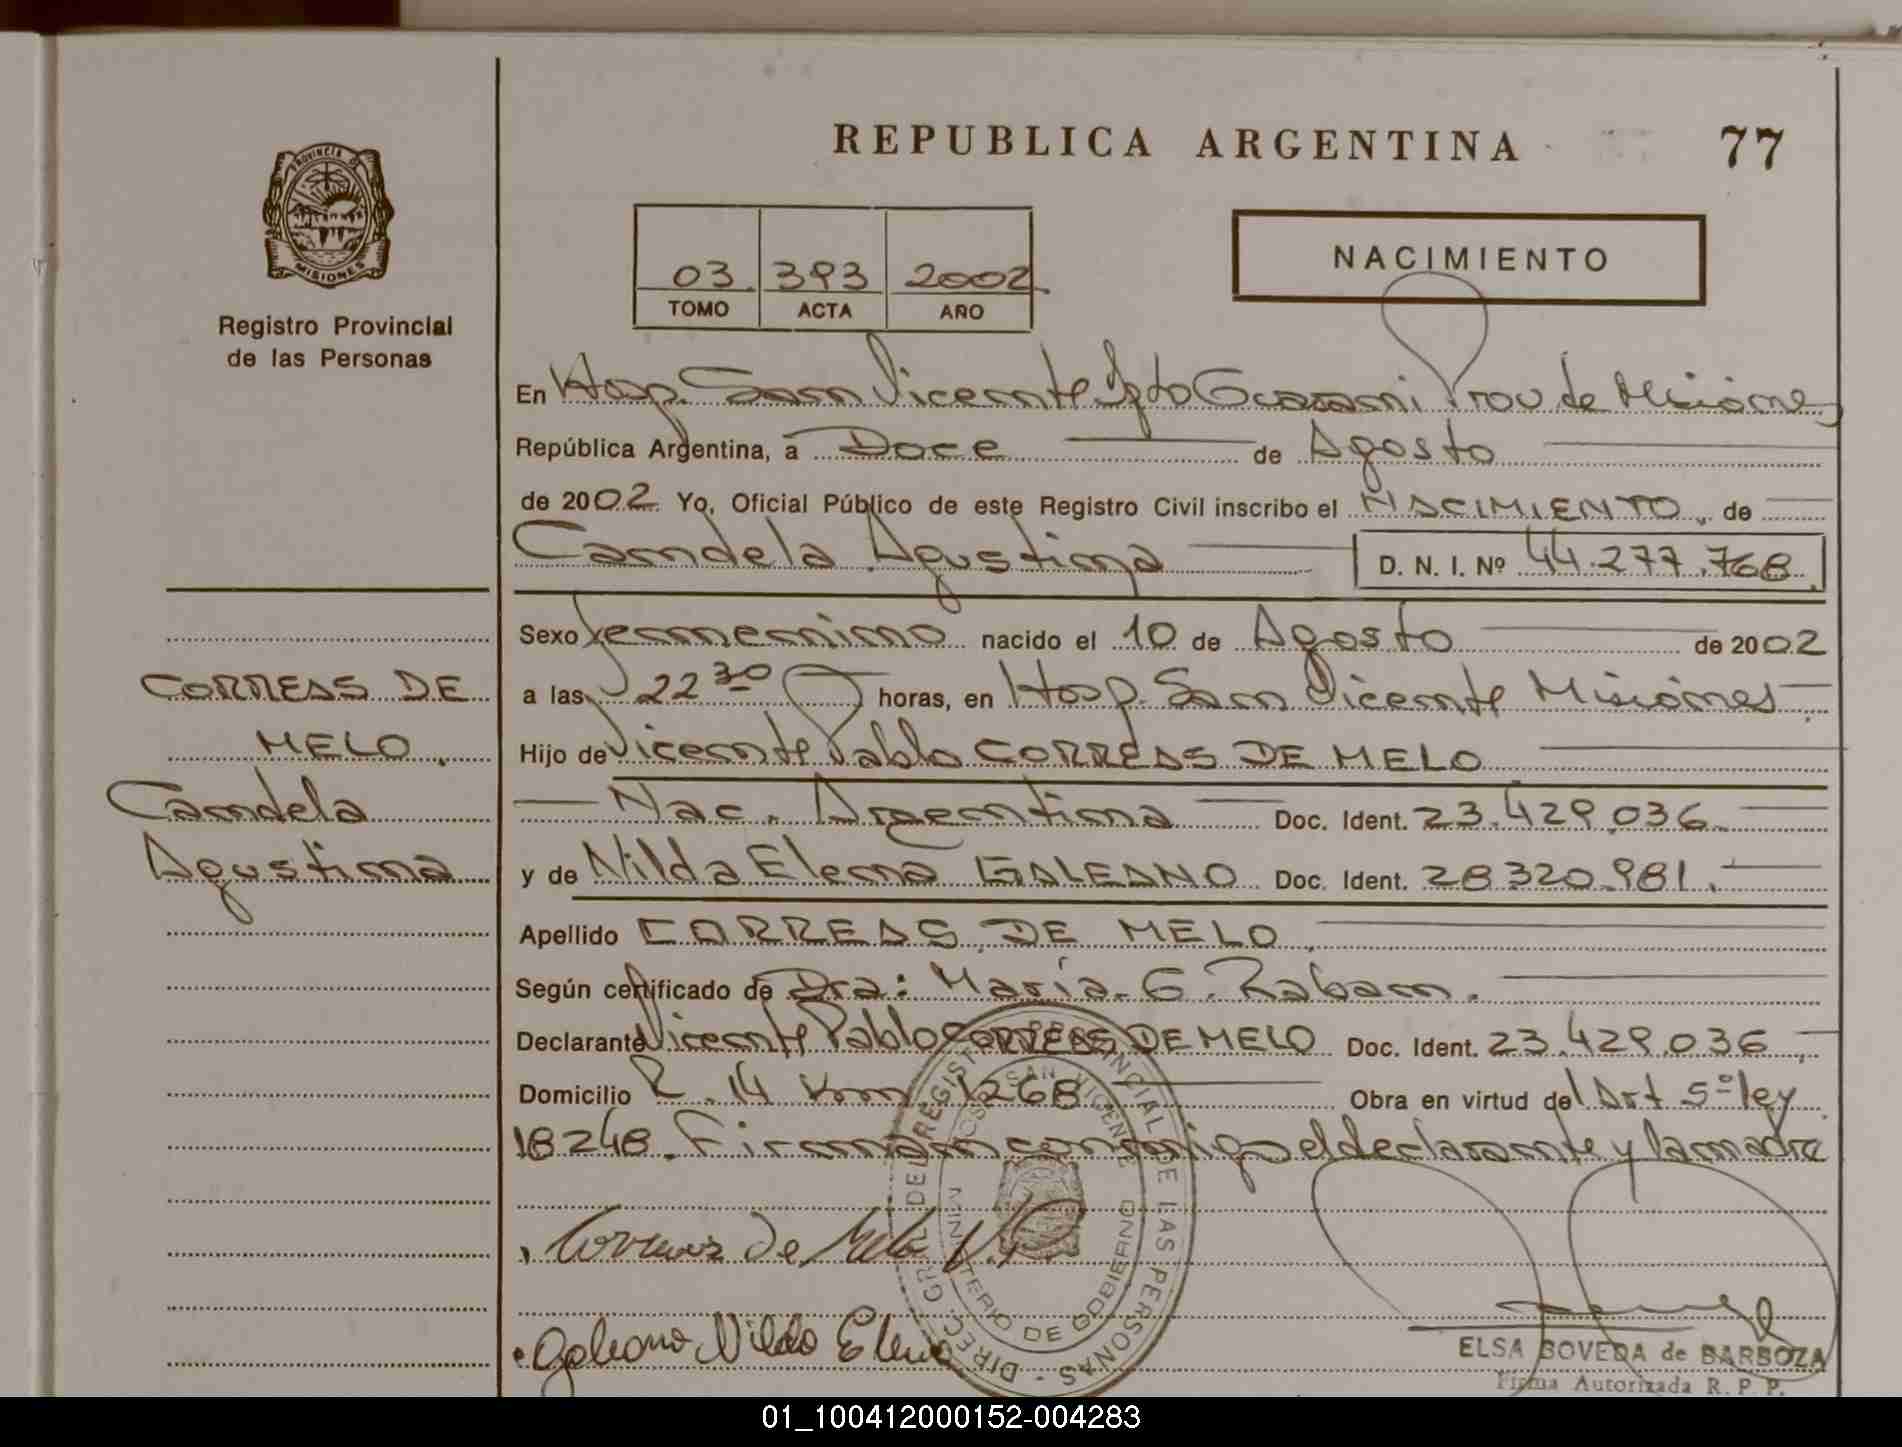 REPUBLICA ARGENTINA
77
PROVINCIA DE
MISIONES
Registro Provincial
de las Personas
03. 393 2002.
TOMO ACTA AÑO
NACIMIENTO
En Hosp. San Vicente Dpto Guarani Prov de Misiones
República Argentina, a Doce de Agosto
de 2002. Yo, Oficial Público de este Registro Civil inscribo el NACIMIENTO, de
Candela Agustina D. N. I. Nº 44.277.768.
Sexo femenino nacido el 10 de Agosto de 2002
a las 22 30 horas, en Hosp. San Vicente Misiones
Hijo de Vicente Pablo CORREAS DE MELO
Nac. Argentina Doc. Ident. 23.429.036.
y de Nilda Elena GALEANO Doc. Ident. 28320.981.
Apellido CORREAS DE MELO.
Según certificado de Dra: María. G. Raban.
Declarante Vicente Pablo CORREAS DE MELO Doc. Ident. 23.429.036.
Domicilio R. 14 Km 1268 Obra en virtud del Art 5º ley
18248. Firman conmigo el declarante y la madre
CORREAS DE
MELO.
Candela
Agustina
Correas De Melo V. P.
Galeano Nilda Elena
DIREC. GRAL. DEL REGISTRO PROVINCIAL DE LAS PERSONAS
HOSP. SAN VICENTE
MINISTERIO DE GOBIERNO
ELSA BOVEDA de BARBOZA
Firma Autorizada R. P. P.
01_100412000152-004283